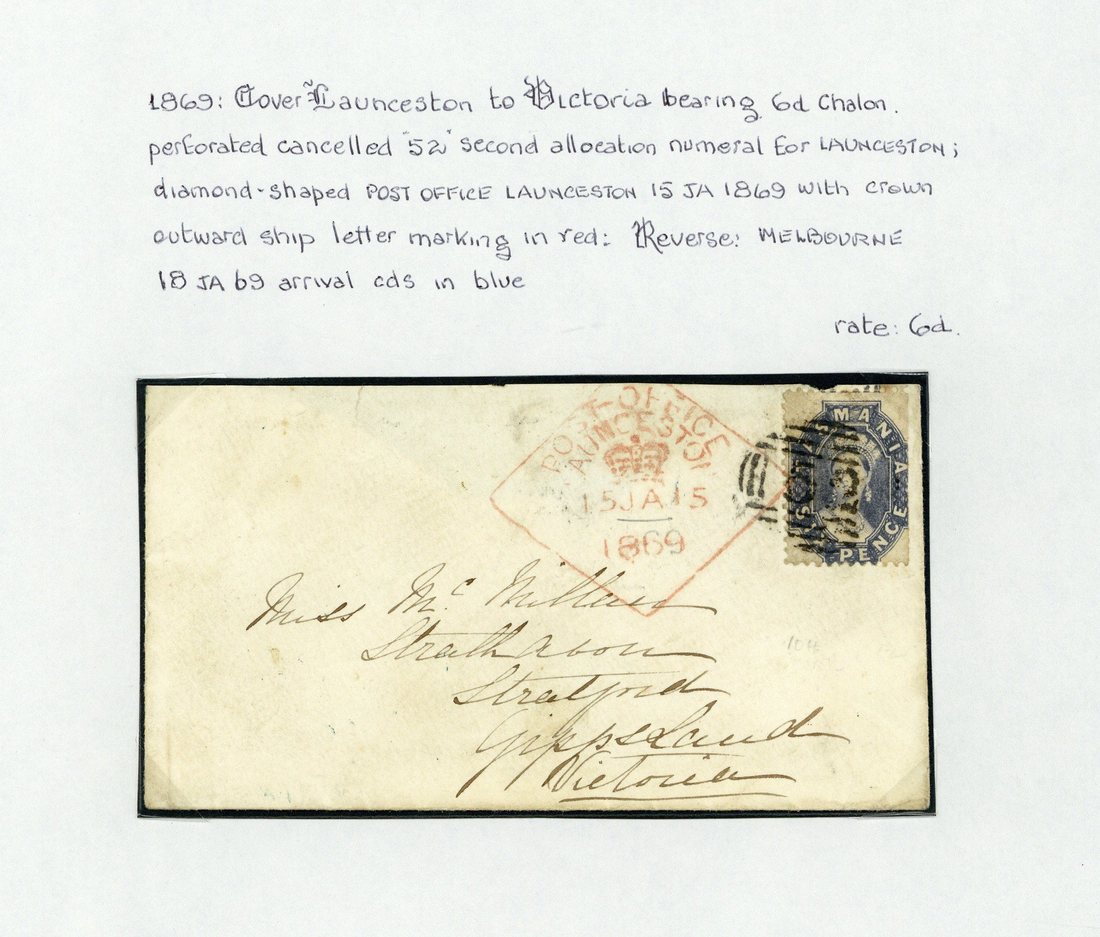 1869: Cover Launceston to Victoria bearing 6d Chalon.
perforated cancelled "52" second allocation numeral for LAUNCESTON;
diamond-shaped POST OFFICE LAUNCESTON 15 JA 1869 with crown
outward ship letter marking in red: Reverse: MELBOURNE
18 JA 69 arrival cds in blue
rate: 6d.
POST-OFFICE
LAUNCESTON
15JA15
1869
TASMANIA
PENCE
Miss Mc Millan
Strath Avon
Stratford
Gipps Land
Victoria